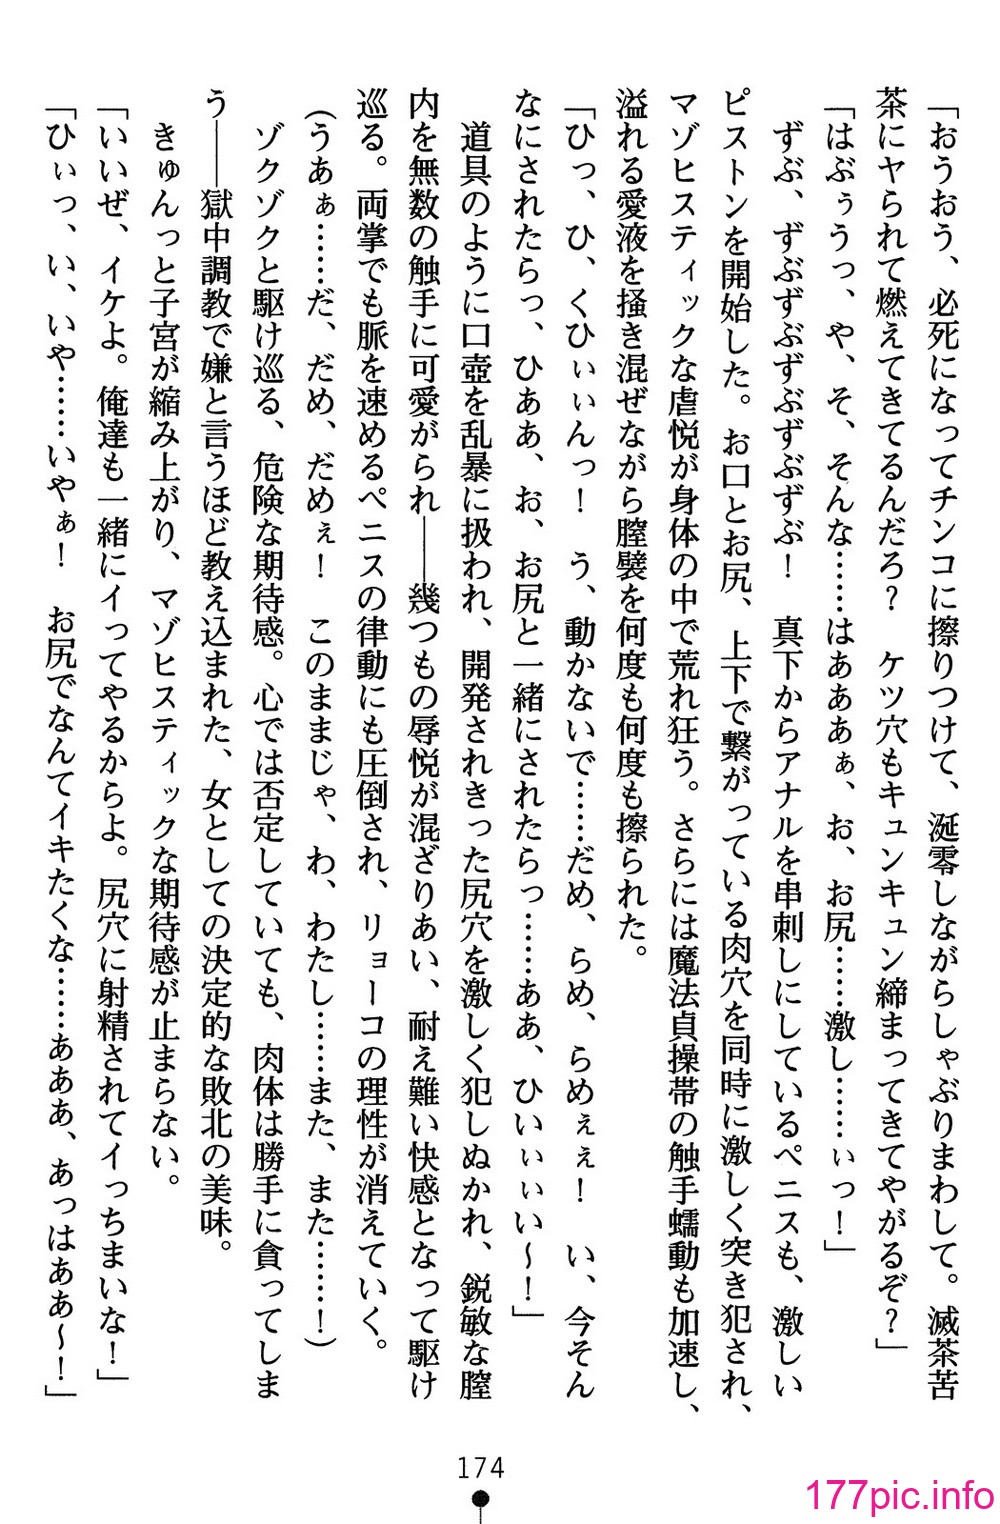 「おうおう、必死になってチンコに擦りつけて、涎零しながらしゃぶりまわして。滅茶苦
茶にヤられて燃えてきてるんだろ？　ケツ穴もキュンキュン締まってきてやがるぞ？」
「はぶぅうっ、や、そ、そんな……はあああぁ、お、お尻……激し……ぃっ！」
　ずぶ、ずぶずぶずぶずぶ！　真下からアナルを串刺しにしているペニスも、激しい
ピストンを開始した。お口とお尻、上下で繋がっている肉穴を同時に激しく突き犯され、
マゾヒスティックな虐悦が身体の中で荒れ狂う。さらには魔法貞操帯の触手蠕動も加速し、
溢れる愛液を掻き混ぜながら膣襞を何度も何度も擦られた。
「ひっ、ひ、くひぃぃんっ！　う、動かないで……だめ、らめ、らめぇぇ！　い、今そん
なにされたらっ、ひああ、お、お尻と一緒にされたらっ……ああ、ひいぃぃい～！」
　道具のように口壺を乱暴に扱われ、開発されきった尻穴を激しく犯しぬかれ、鋭敏な膣
内を無数の触手に可愛がられ――幾つもの辱悦が混ざりあい、耐え難い快感となって駆け
巡る。両掌でも脈を速めるペニスの律動にも圧倒され、リョーコの理性が消えていく。
（うあぁ……だ、だめ、だめぇ！　このままじゃ、わ、わたし……また、また……！）
　ゾクゾクと駆け巡る、危険な期待感。心では否定していても、肉体は勝手に貪ってしま
う――獄中調教で嫌と言うほど教え込まれた、女としての決定的な敗北の美味。
　きゅんっと子宮が縮み上がり、マゾヒスティックな期待感が止まらない。
「いいぜ、イケよ。俺達も一緒にイってやるからよ。尻穴に射精されてイっちまいな！」
「ひぃっ、い、いや……いやぁ！　お尻でなんてイキたくな……あああ、あっはああ～！」
174
177pic.info